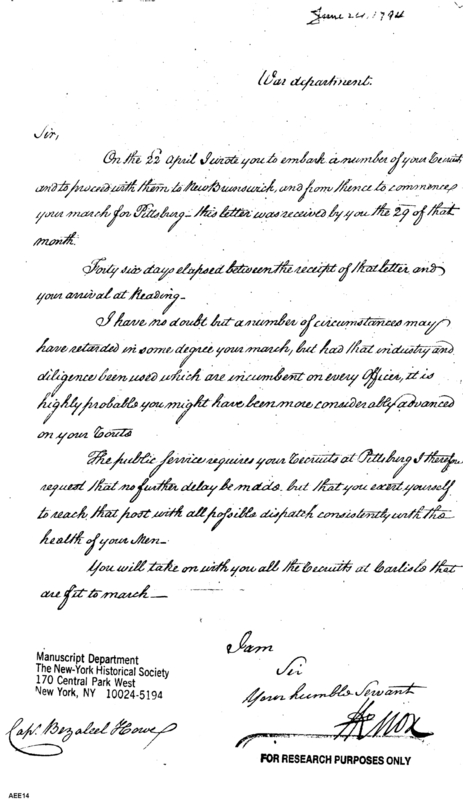 June 24. 1794
War department.
Sir,
On the 22 April I wrote you to embark a number of your Recruits
and to proceed with them to New Brunswick, and from thence to commence
your march for Pittsburg – this letter was received by you the 29 of that
month.
Forty six days elapsed between the receipt of that letter and
your arrival at Reading –
I have no doubt but a number of circumstances may
have retarded in some degree your march, but had that industry and
diligence been used which are incumbent on every Officer, it is
highly probable you might have been more considerably advanced
on your Route
The public service requires your Recruits at Pittsburg I therefore
request that no further delay be made, but that you exert yourself
to reach that post with all possible dispatch consistently with the
health of your Men –
You will take on with you all the Recruits at Carlisle that
are fit to march —
I am
Sir
Your humble Servant
HKnox
Manuscript Department
The New-York Historical Society
170 Central Park West
New York, NY 10024-5194
Capt. Bezaleel Howe
FOR RESEARCH PURPOSES ONLY
AEE14